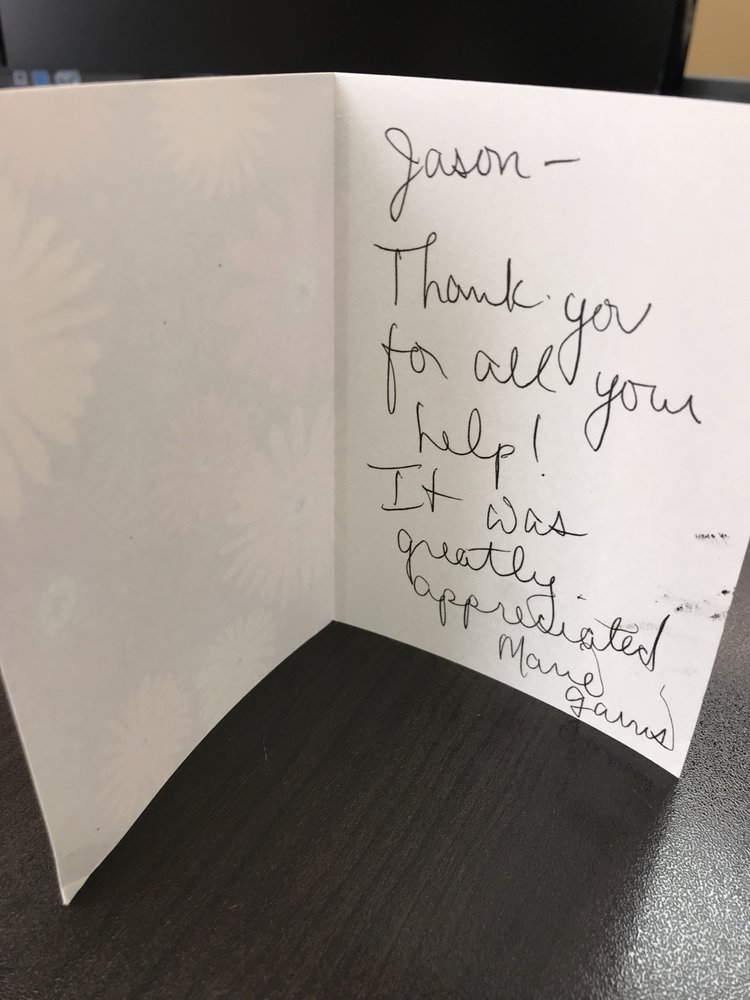 Jason –
Thank you
for all your
help!
It was
greatly
appreciated